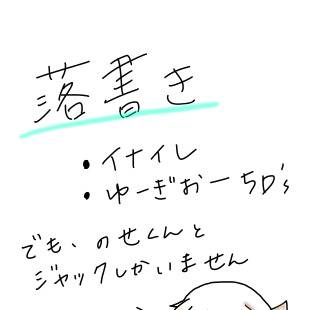 落書き
・イナイレ
・ゆーぎおー5D's
でも、のせくんと
ジャックしかいません